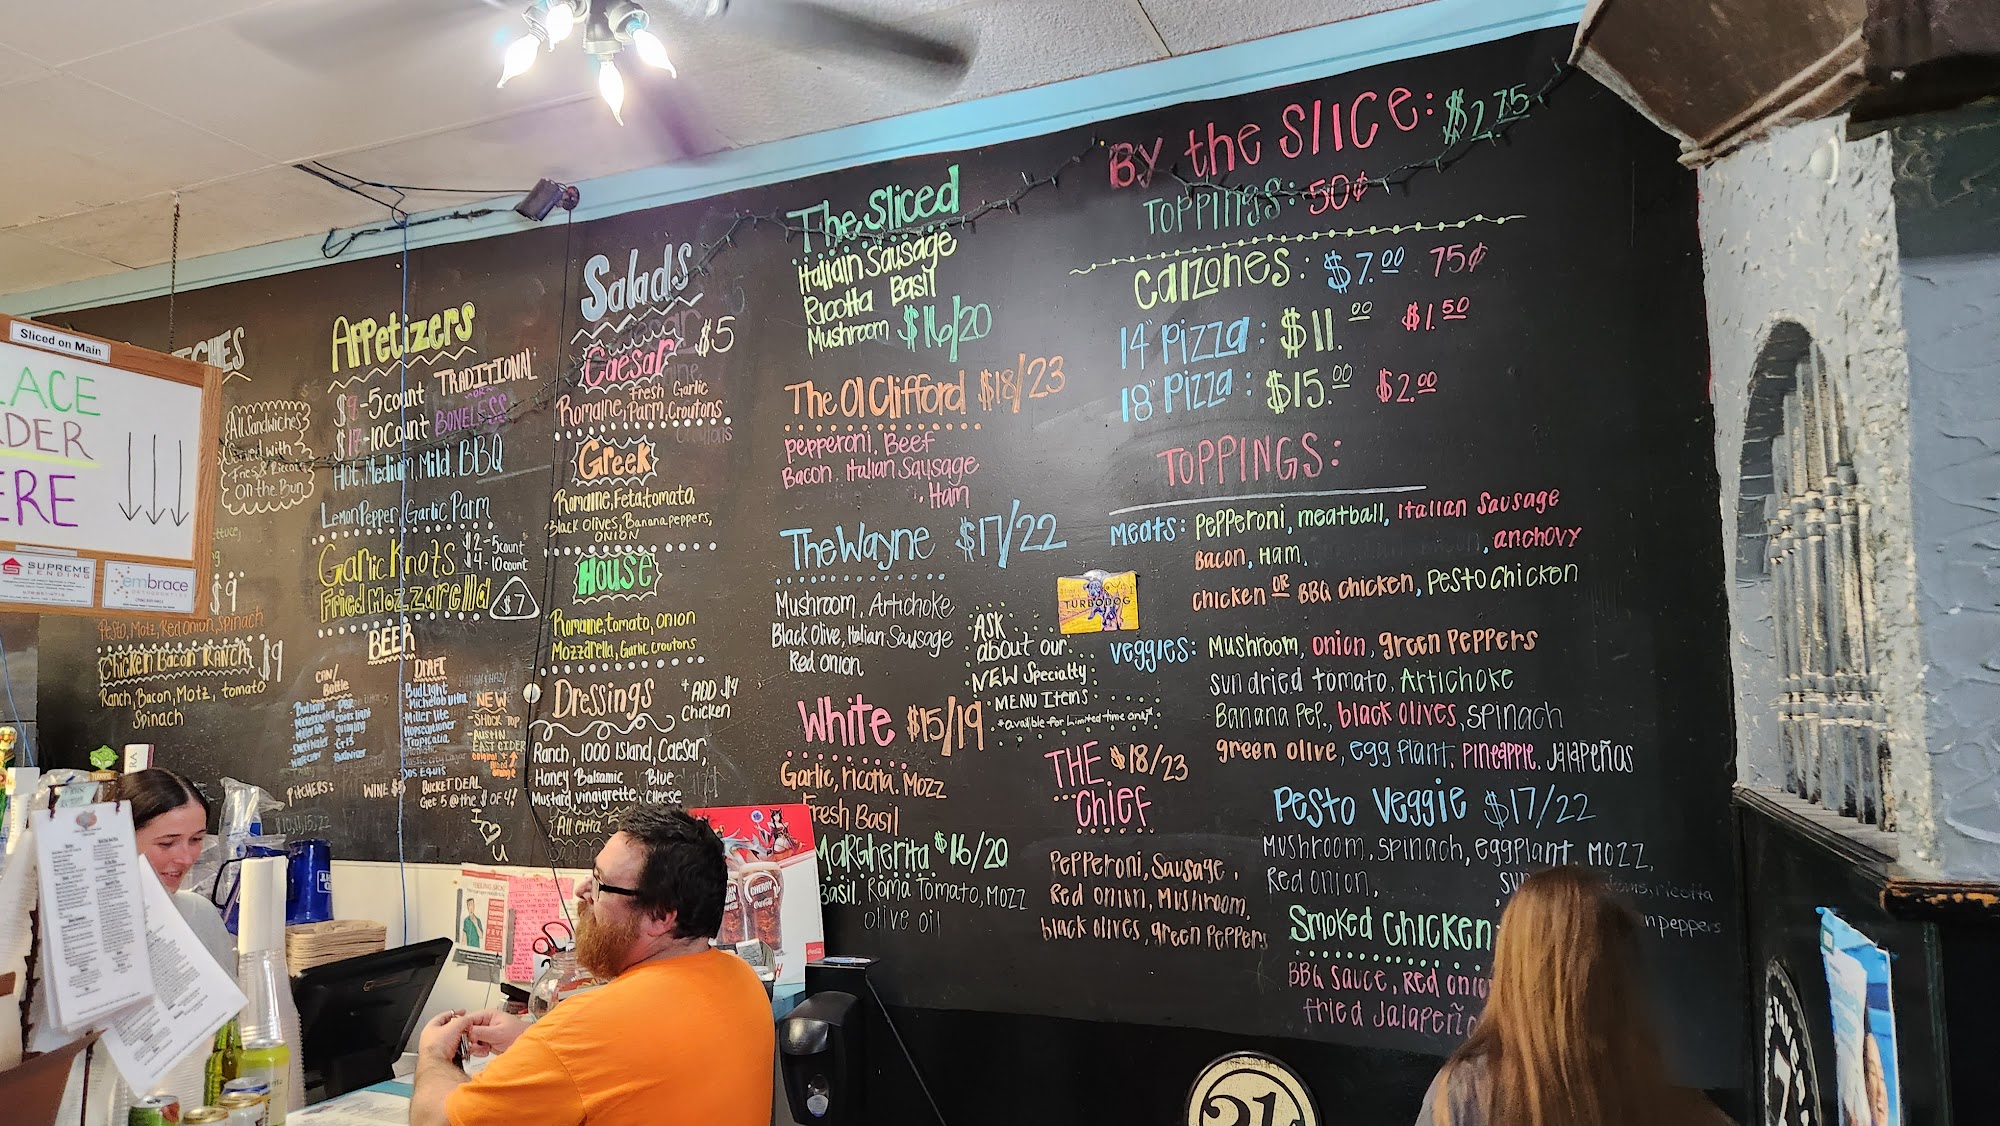 Sliced on Main
LACE
RDER
ERE
SUPREME
LENDING
embrace
ORTHODONTICS
CHES
All Sandwiches
Served with
Fries & Ricotta
On the Bun
$9
Pesto, Motz, Red onion, Spinach
Chicken Bacon RANCH $9
Ranch, Bacon, Motz, tomato
Spinach
Appetizers
$9-5count TRADITIONAL
OR
$17-10count BONELESS
Hot, Medium, Mild, BBQ
Lemon Pepper, Garlic Parm
Garlic Knots $2-5count
$4-10count
Fried Mozzarella $7
BEER
CAN/
Bottle
DRAFT
Bud Light
Michelob Ultra
Miller lite
Tropicalia
DOS EQUIS
NEW
-SHOCK TOP
-AUSTIN
EAST CIDER
original
Blood
orange
PITCHERS:
WINE $5
BUCKET DEAL
Get 5 @ the $ of 4!
I ♡ u
Salads
Caesar $5
Fresh Garlic
Romaine, Parm, Croutons
Greek
Romaine, Feta, tomato,
Black Olives, Banana peppers,
ONION
HOUSE
Romaine, tomato, onion
Mozzarella, Garlic croutons
Dressings
+ ADD $4
Chicken
Ranch, 1000 Island, Caesar,
Honey Balsamic Blue
Mustard, vinaigrette, Cheese
All extra 5
The Sliced
Italiain Sausage
Ricotta Basil
Mushroom $16/20
The Ol Clifford $18/23
pepperoni, Beef
Bacon, Italian Sausage
, Ham
The Wayne $17/22
Mushroom, Artichoke
Black Olive, Italian Sausage
Red onion
Ask
about our
NEW Specialty
MENU Items
*available for limited time only*
TURBODOG
White $15/19
Garlic, ricotta, Mozz
Fresh Basil
Margherita $16/20
Basil, Roma Tomato, Mozz
olive oil
THE $18/23
Chief
Pepperoni, Sausage,
Red onion, Mushroom,
black olives, green Peppers
BY the SlICE: $2.75
TOPPINGS: 50¢
Calzones: $7.00 75¢
14" Pizza: $11.00 $1.50
18" Pizza: $15.00 $2.00
TOPPINGS:
Meats: Pepperoni, meatball, Italian Sausage
Bacon, Ham, , anchovy
chicken OR BBQ chicken, Pesto Chicken
Veggies: Mushroom, onion, green peppers
sun dried tomato, Artichoke
Banana Pep., black olives, spinach
green olive, egg plant, pineapple, Jalapeños
Pesto Veggie $17/22
Mushroom, spinach, eggplant, Mozz,
Red onion, ricotta
peppers
Smoked Chicken
BBQ sauce, Red onio
fried Jalapeño
CHERRY
21